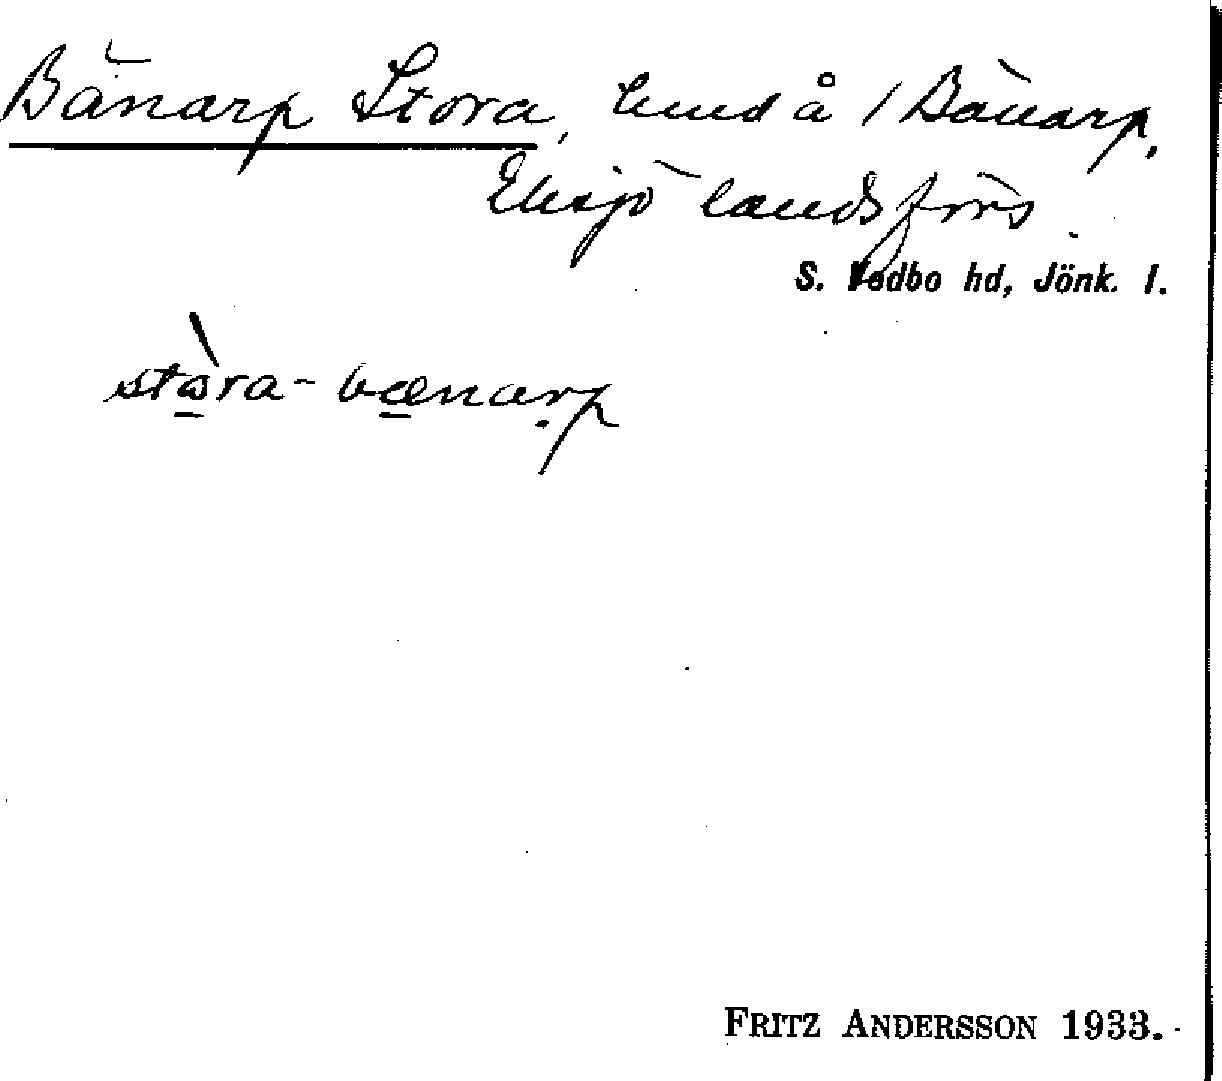 Bänarp Stora, hmd å 1 Bänarp,
Eksjö landsförs.
S. Vedbo hd, Jönk. l.
stora-bænarp
FRITZ ANDERSSON 1933.